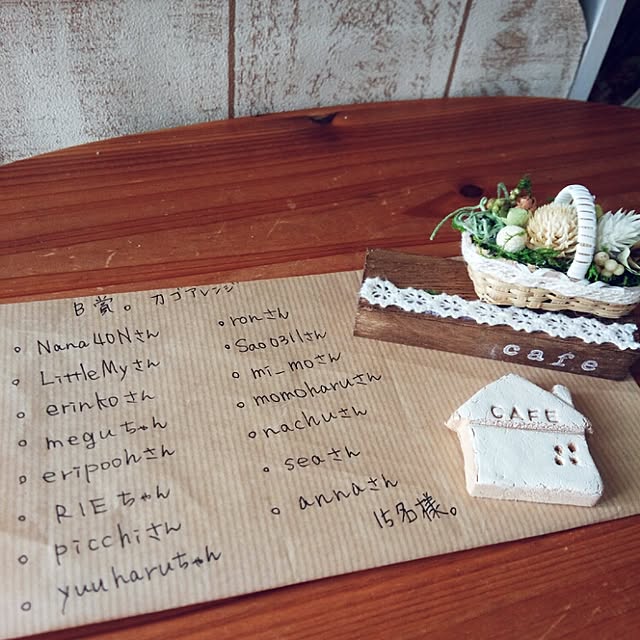 B賞。カゴアレンジ
Nana40Nさん
LittleMyさん
erinkoさん
meguちゃん
eripoohさん
RIEちゃん
picchiさん
yuuharuちゃん
ronさん
Sao0311さん
mi_moさん
momoharuさん
nachuさん
seaさん
annaさん
15名様。
cafe
CAFE